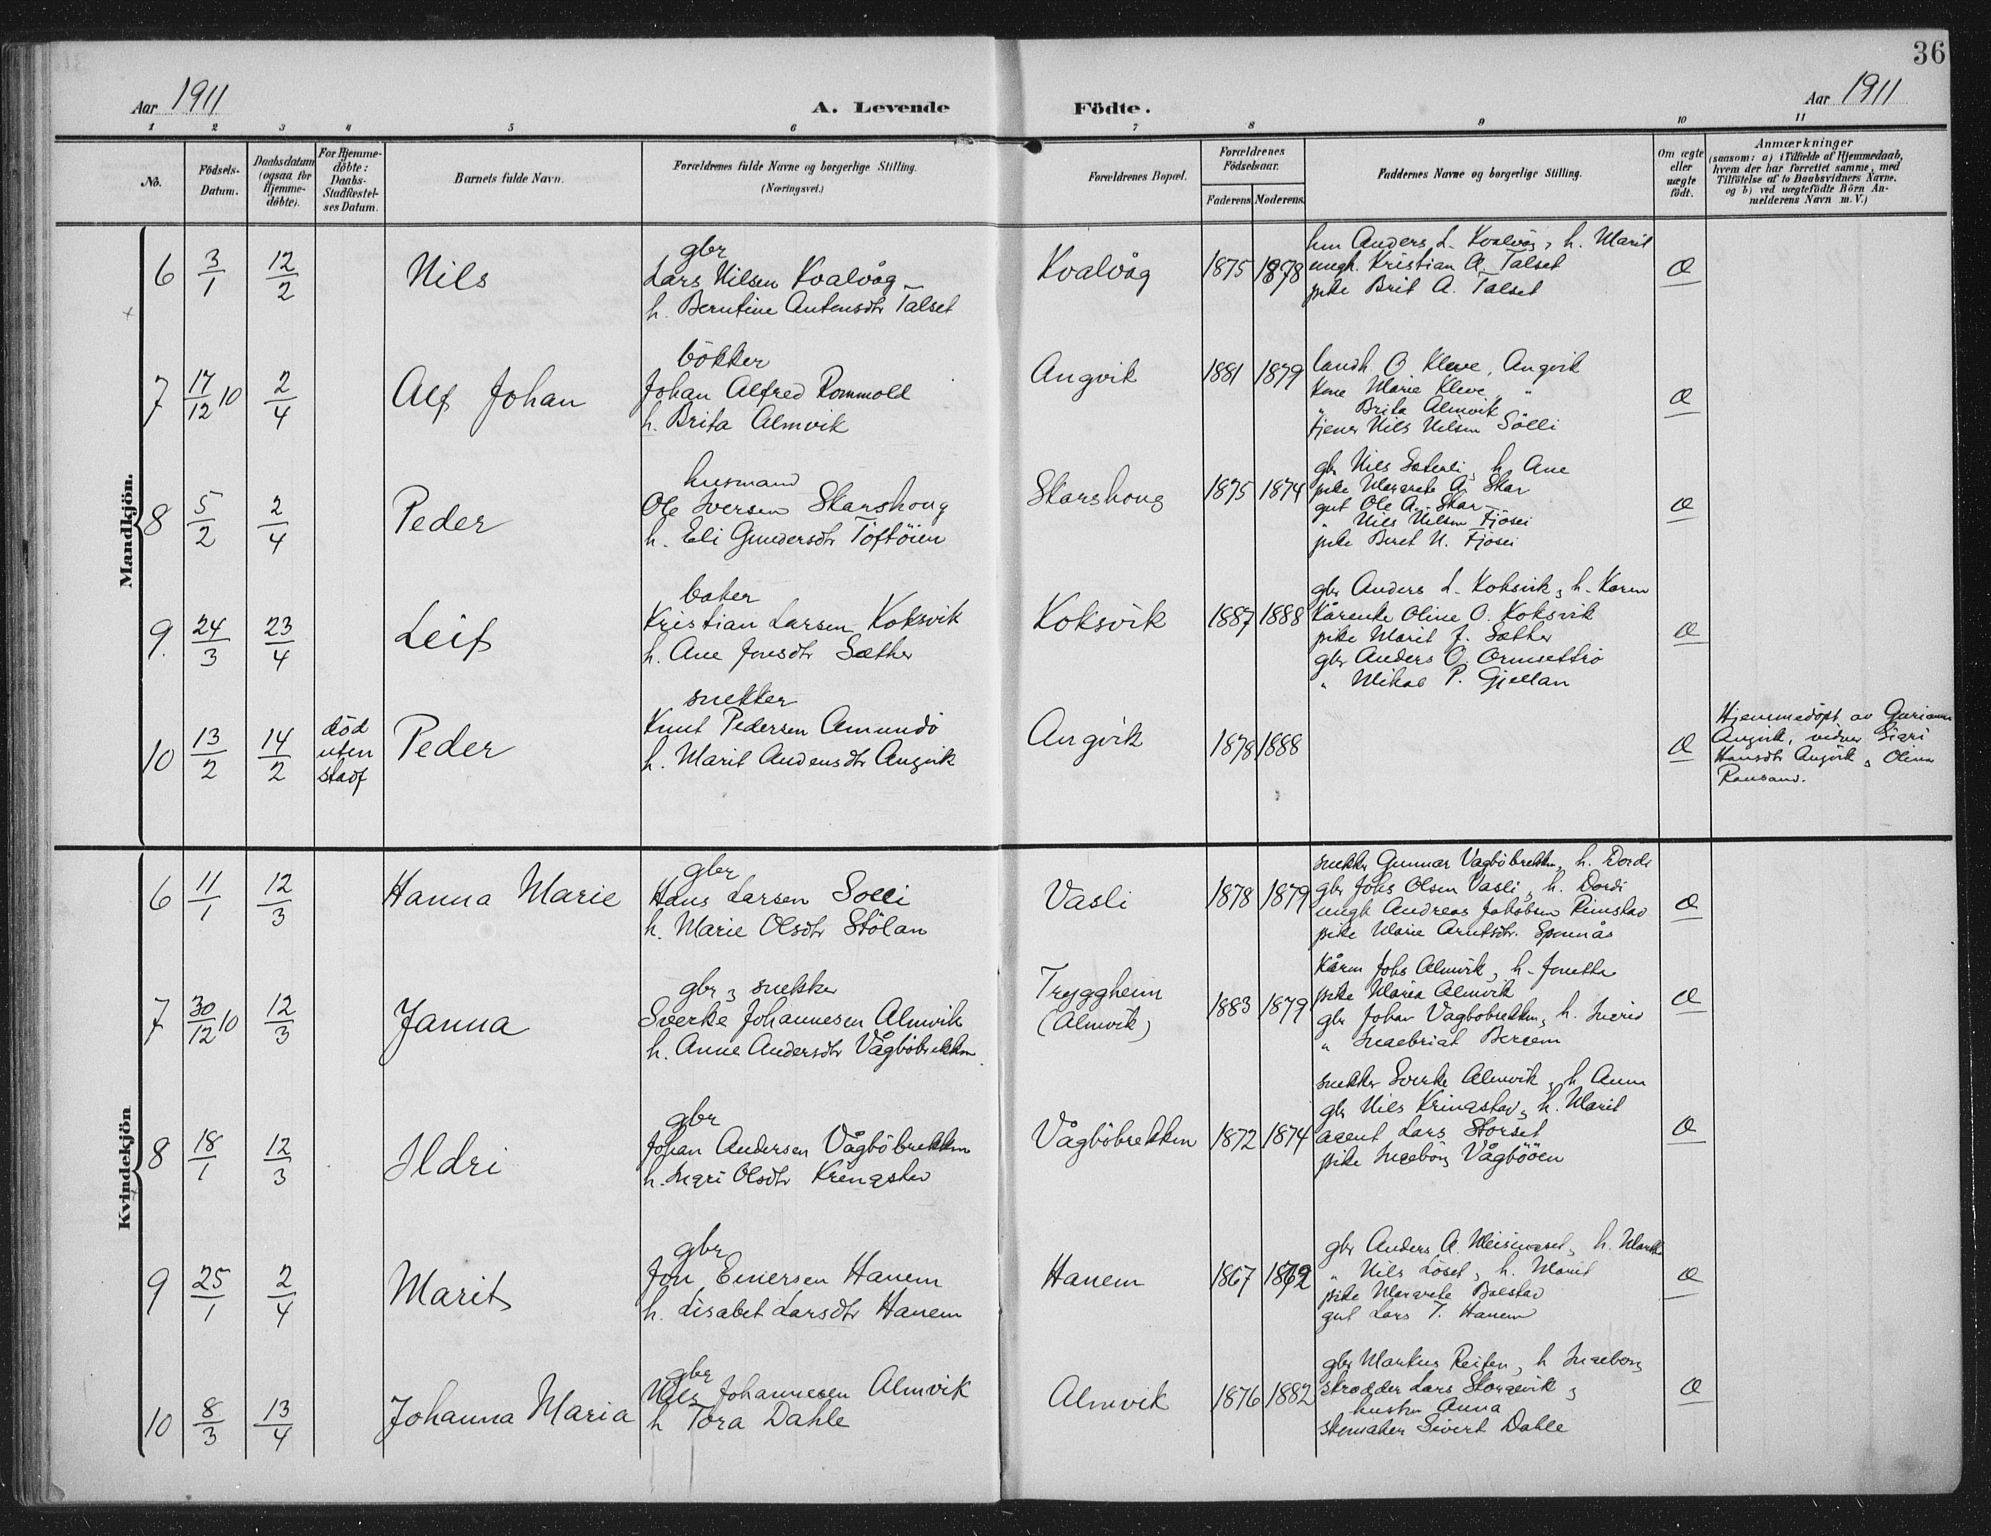 36
Aar 1911
A. Levende
Födte.
Aar 1911
1 2 3 4 5 6 7 8 9 10 11
No.
Födsels-
Datum.
Daabsdatum
(ogsaa for
Hjemme-
døbte).
For Hjemme-
döbte:
Daabs-
Stadfæstel-
ses Datum.
Barnets fulde Navn.
Forældrenes fulde Navne og borgerlige Stilling.
(Næringsvei.)
Forældrenes Bopæl.
Forældrenes
Födselsaar.
Faderens. Moderens.
Faddernes Navne og borgerlige Stilling.
Om ægte
eller
uægte
födt.
Anmærkninger
(saasom: a) i Tilfælde af Hjemmedaab,
hvem der har forrettet samme, med
Tilföielse af to Daabsvidners Navne.
og b) ved uægtefödte Börn An-
melderens Navn m. V.)
Mandkjön.
6 3/1 12/2 Nils
gbr
Lars Nilsen Kvalvåg
h. Berntine Antonsdtr Talset
Kvalvåg 1875 1878
Anders L. Kvalvåg, h. Marit
ungk. Kristian A. Talset
pike Brit A. Talset
Æ
7 17/12 10 2/4 Alf Johan
bökker
Johan Alfred Rommold
h. Brita Almvik
Angvik 1881 1879
landh. O. Kleve, Angvik
Kone Marie Kleve "
" Brita Almvik
tjener Nils Nilsen Sölli
Æ
8 5/2 2/4 Peder
husmand
Ole Iversen Skarshoug
h. Eli Gundersdtr Töftöien
Skarshoug 1875 1874
gbr Nils Sæterli, h. Ane
pike Margrete A. Skar
gut Ole A. Skar
" Nils Nilsen Fjösei
pike Beret N. Fjösei
Æ
9. 24/3 23/4 Leif
baker
Kristian Larsen Koksvik
h. Ane Jonsdtr Sæther
Koksvik 1887 1888
gbr Anders L. Koksvik, h. Karen
Kårenke Oline O. Koksvik
pike Marit J. Sæther
gbr Anders O. Ormsettrö
" Mikal P. Gjellan
Æ
10 13/2 14/2 död
uten
stadf
Peder
snekker
Knut Pedersen Amundö
h. Marit Andersdtr Angvik
Angvik 1878 1888
Æ
Hjemmedöpt av Gurianna
Angvik, vidner Sigri
Hansdtr Angvik, Olina
Ransand.
Kvindekjön
6 11/1 12/3 Hanna Marie
gbr
Hans Larsen Solli
h. Marie Olsdtr Stölan
Vasli 1878 1879
snekker Gunnar Vågböbrekken, h. Dordi
gbr Johs Olsen Vasli, h. Dordi
ungk Andreas Jakobsen Rimstad
pike Marie Arntsdtr.
Æ
7 30/12 10 12/3 Janna
gbr, snekker
Sverke Johannesen Almvik
h. Anne Andersdtr Vågböbrekken
Tryggheim
(Almvik)
1883 1879
Kårm Johs Almvik, h. Jonetta
pike Maria Almvik
gbr Johan Vågböbrekken, h. Ingrid
" Ingebrigt Bergem
Æ
8 18/1 12/3 Ildri
gbr
Johan Andersen Vågböbrekken
h. Ingri Olsdtr Kringstad
Vågböbrekken 1872 1874
snekker Sverke Almvik, h. Anne
gbr Nils Kringstad, h. Marit
agent Lars Storset
pike Ingebörg Vågbööen
Æ
9 25/1 2/4 Marit
gbr
Jon Einersen Hanem
h. Lisabet Larsdtr Hanem
Hanem 1867 1869
gbr Anders A. Meisingset, h. Marit
" Nils Löset, h. Marit
pike Margrete Bolstad
gut Lars T. Hanem
Æ
10 8/3 13/4 Johanna Maria
gbr
Nils Johannesen Almvik
h Tora Dahle
Almvik 1876 1882
gbr Markus Reiten, h Ingeborg
skrædder Lars Storvik,
hustru Anna
skomaker Sivert Dahle
Æ